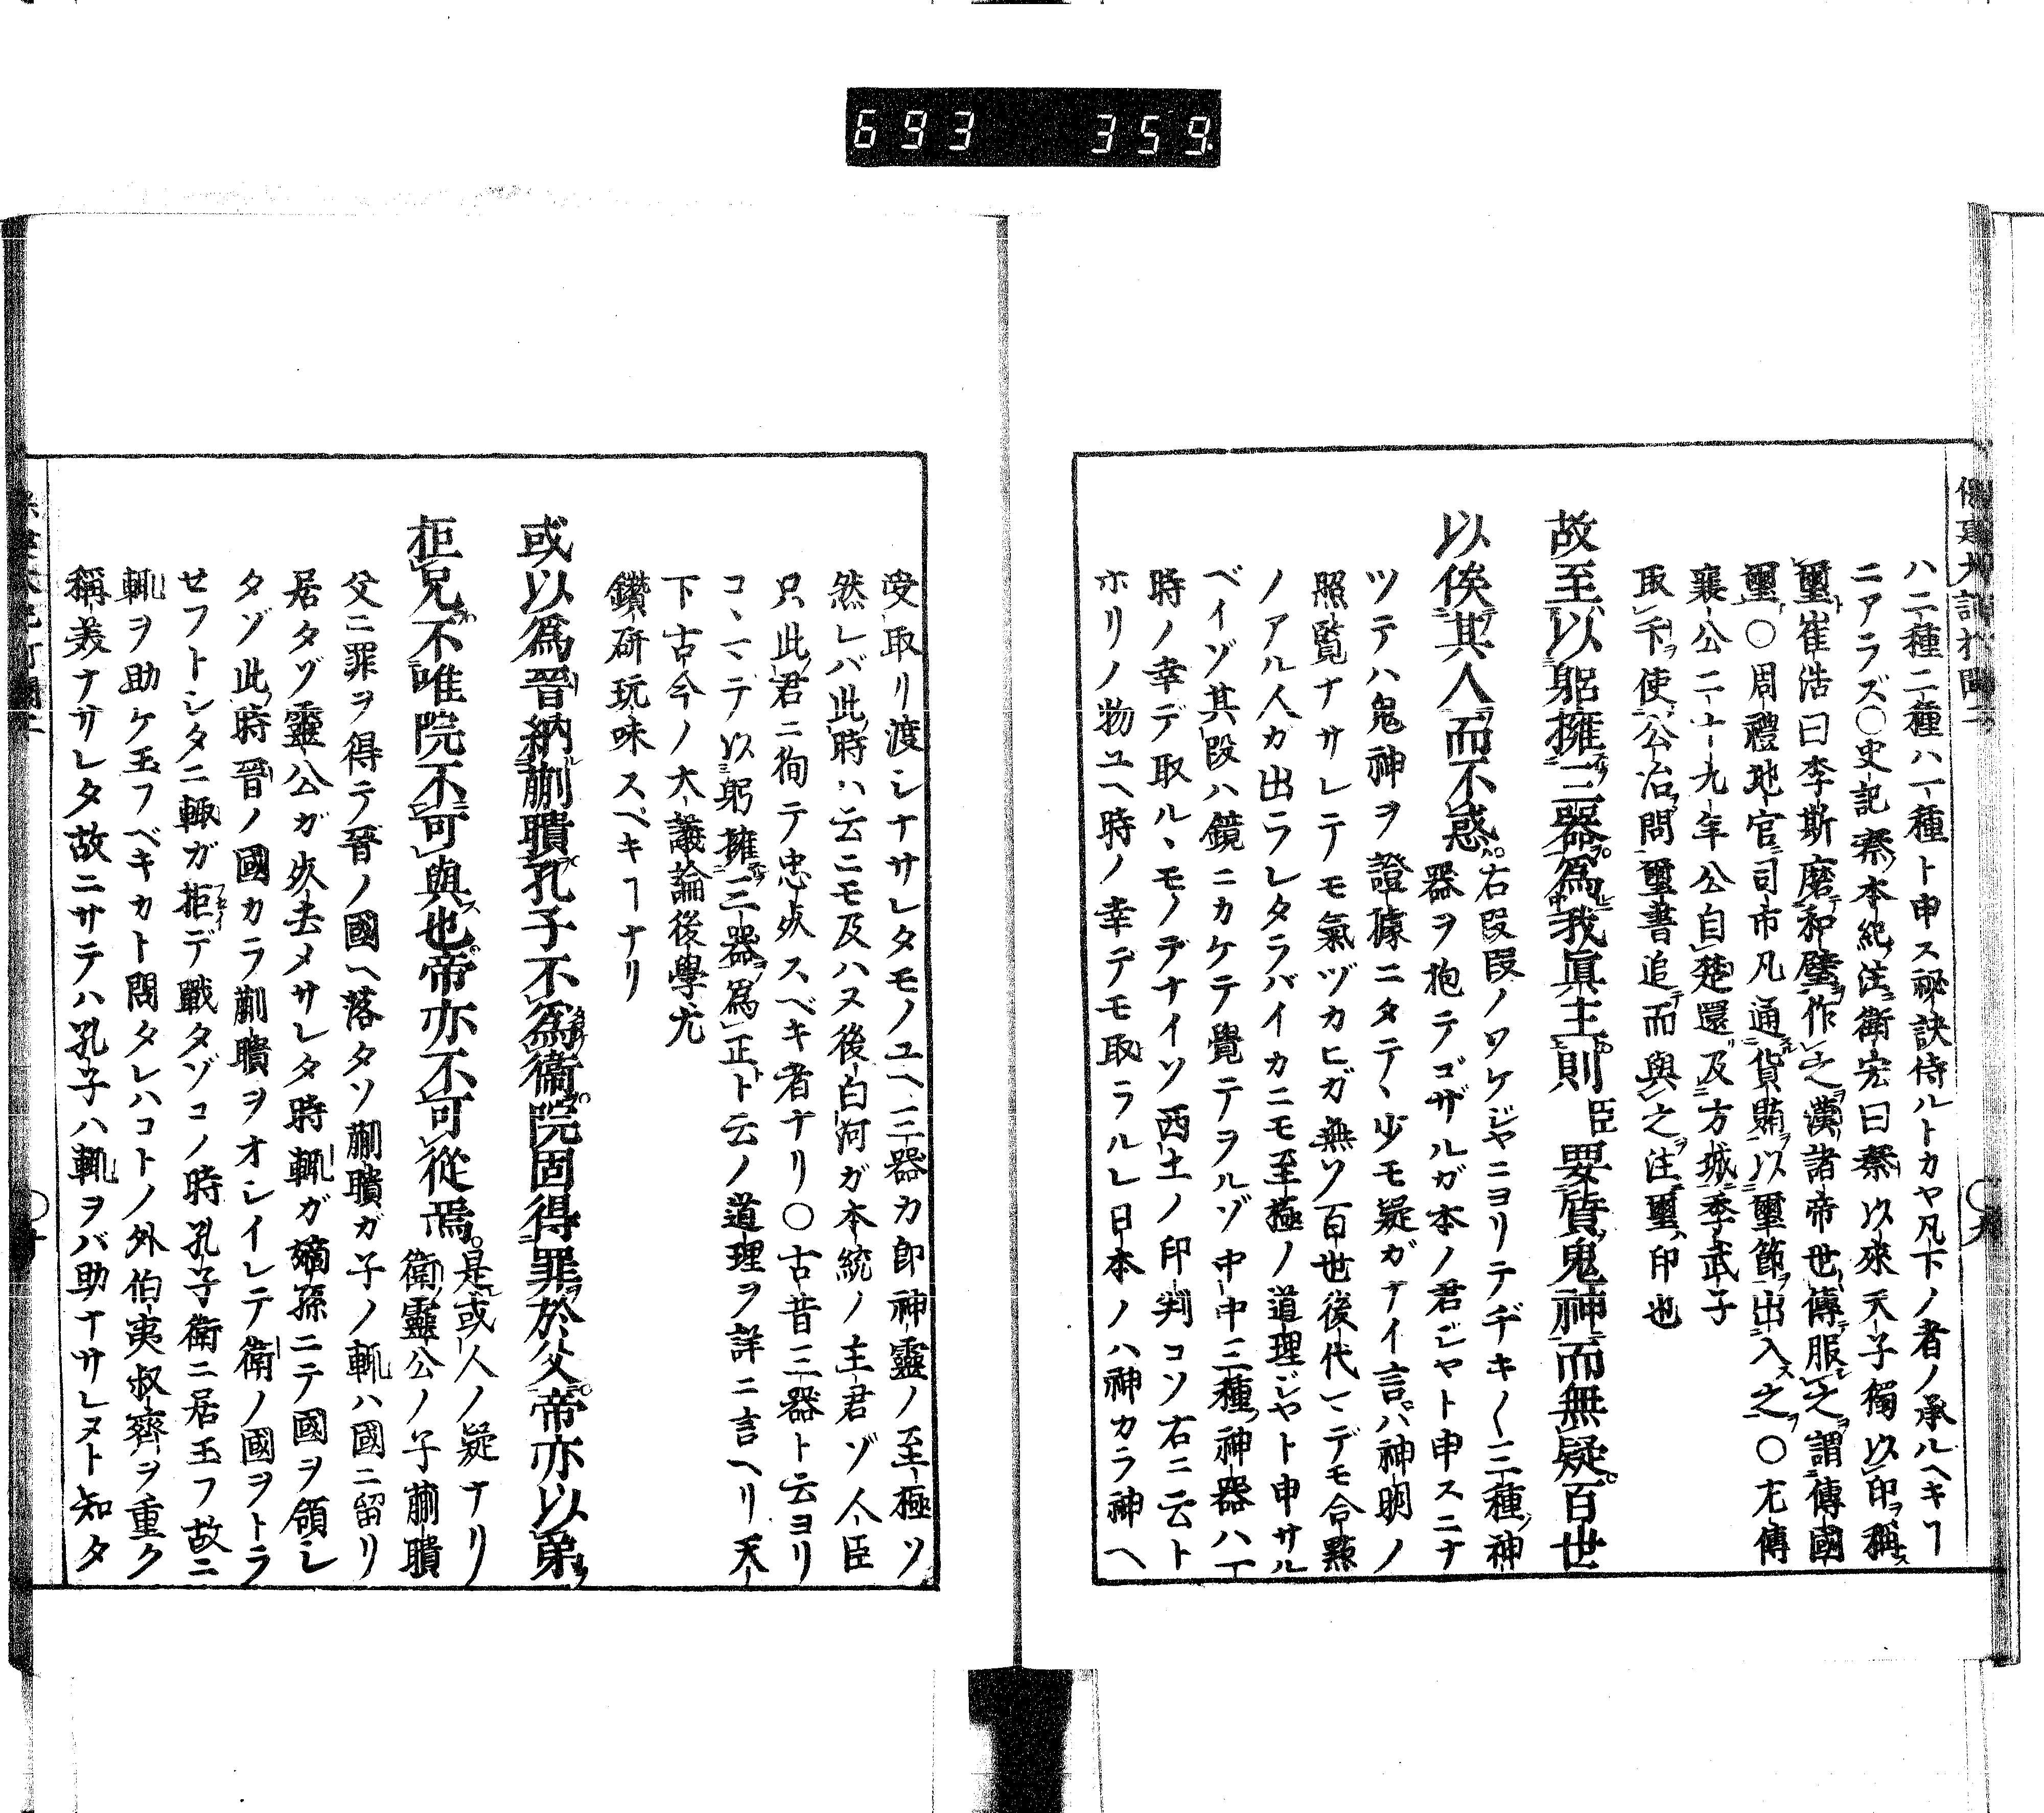 693 359
保建大記打聞二
ハ二種二種ハ一種ト申ス祕訣侍ルトカヤ凡下ノ者ノ承ルヘキヿ
ニアラズ〇史記秦ノ本紀注衛宏曰秦以來天子獨以印稱
璽崔浩曰李斯磨和璧作之漢諸帝世傳服之謂傳國
璽〇周禮地官司市凡通貨賄以璽節出入之〇左傳
襄公二十九年公自楚還及方城季武子
取卞使公冶問璽書追而與之注璽印也
故至以躬擁三器為我眞主則臣要質鬼神而無疑百世
以俟其人而不惑右段段ノワケジヤニヨリテヂキ〱三種ノ神
器ヲ抱テゴザルガ本ノ君ジヤト申スニナ
ツテハ鬼神ヲ證據ニタテヽ少モ疑ガナイ言ハ神明ノ
照覧ナサレテモ氣ヅカヒガ無ソ百世後代マデモ合點
ノアル人カ出ラレタラバイカニモ至極ノ道理ジヤト申サル
ベイゾ其段ハ鏡ニカケテ覺テヲルゾ中中三種ノ神器ハ一
時ノ幸デ取ルヽモノデナイソ西土ノ印判コソ右ニ云ト
ホリノ物ユヘ時ノ幸デモ取ラルレ日本ノハ神カラ神ヘ
受取リ渡シナサレタモノユヘ三器カ即神靈ノ至極ソ
然レバ此時ハ云ニモ及ハヌ後白河ガ本統ノ主君ゾ人臣
只此君ニ徇テ忠死スベキ者ナリ〇古昔三器ト云ヨリ
コヽマデ以躬擁三器為正ト云ノ道理ヲ詳ニ言ヘリ天
下古今ノ大議論後學尤
鑽研玩味スベキヿナリ
或以為晉納蒯聵孔子不為衞院固得罪於父帝亦以弟
拒兄不唯院不可與也帝亦不可從焉是或人ノ疑ナリ
衛靈公ノ子蒯聵
父ニ罪ヲ得テ晉ノ國ヘ落タソ蒯聵ガ子ノ輒ハ國ニ留リ
居タゾ靈公ガ死去メサレタ時輒ガ嫡孫ニテ國ヲ領シ
タゾ此時晉ノ國カラ蒯聵ヲオシイレテ衛ノ國ヲトラ
セフトシタニ輒ガ拒デ戰タゾコノ時孔子衛ニ居玉フ故ニ
輒ヲ助ケ玉フベキカト問タレハコトノ外伯夷叔齊ヲ重ク
稱美ナサレタ故ニサテハ孔子ハ輒ヲバ助ナサレヌト知タ